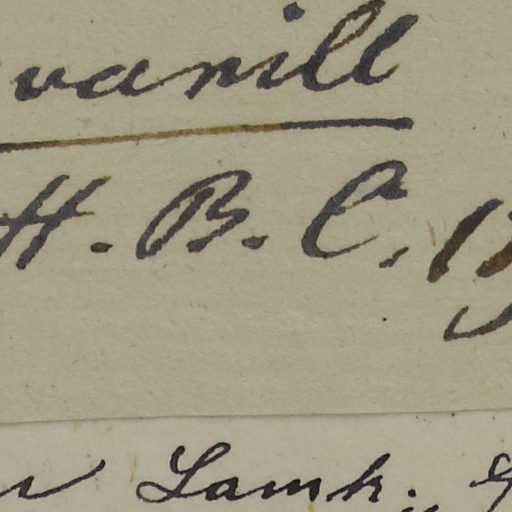 vanill
H. B. C. 17
Lamk.